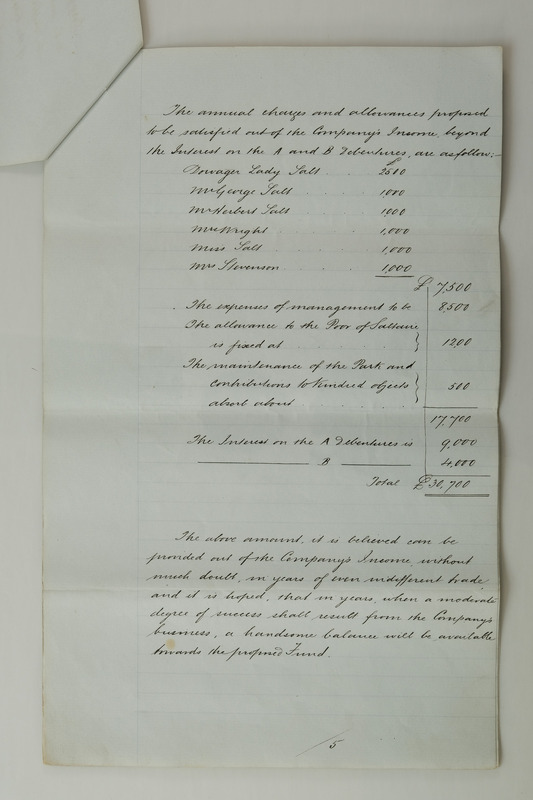 The annual charges and allowances proposed
to be satisfied out of the Company's Income, beyond
the Interest on the A and B Debentures, are as follow:-
£
Dowager Lady Salt . . . 2500
Mr George Salt . . . 1,000
Mr Herbert Salt . . . 1,000
Mrs Wright . . . 1,000
Miss Salt . . . 1,000
Mrs Stevenson . . . 1,000
£ 7,500
The expenses of management to be 8,500
The allowance to the Poor of Saltaire
is fixed at . . . } 1200
The maintenance of the Park and
contributions to kindred objects } 500
absorb about . . .
17,700
The Interest on the A Debentures is 9,000
B 4,000
Total £30,700
The above amount, it is believed can be
provided out of the Company's Income, without
much doubt, in years of even indifferent trade,
and it is hoped, that in years, when a moderate
degree of success shall result from the Company's
business, a handsome balance will be available
towards the proposed Fund.
5